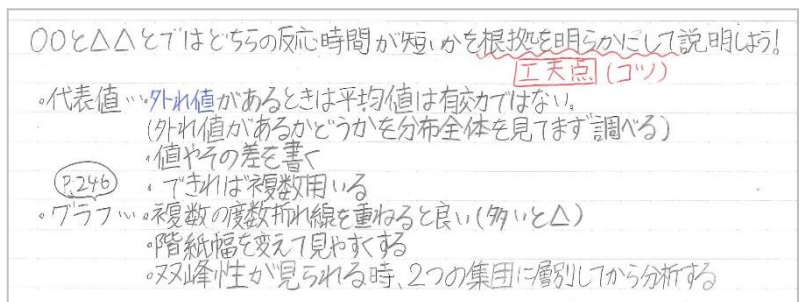 ○○と△△とではどちらの反応時間が短いかを根拠を明らかにして説明しよう!
工夫点(コツ)
・代表値…外れ値があるときは平均値は有効ではない。
(外れ値があるかどうかを分布全体を見てまず調べる)
・値やその差を書く
P.246 ・できれば複数用いる
・グラフ…・複数の度数折れ線を重ねると良い(多いと△)
・階級幅を変えて見やすくする
・双峰性が見られる時、2つの集団に層別してから分析する